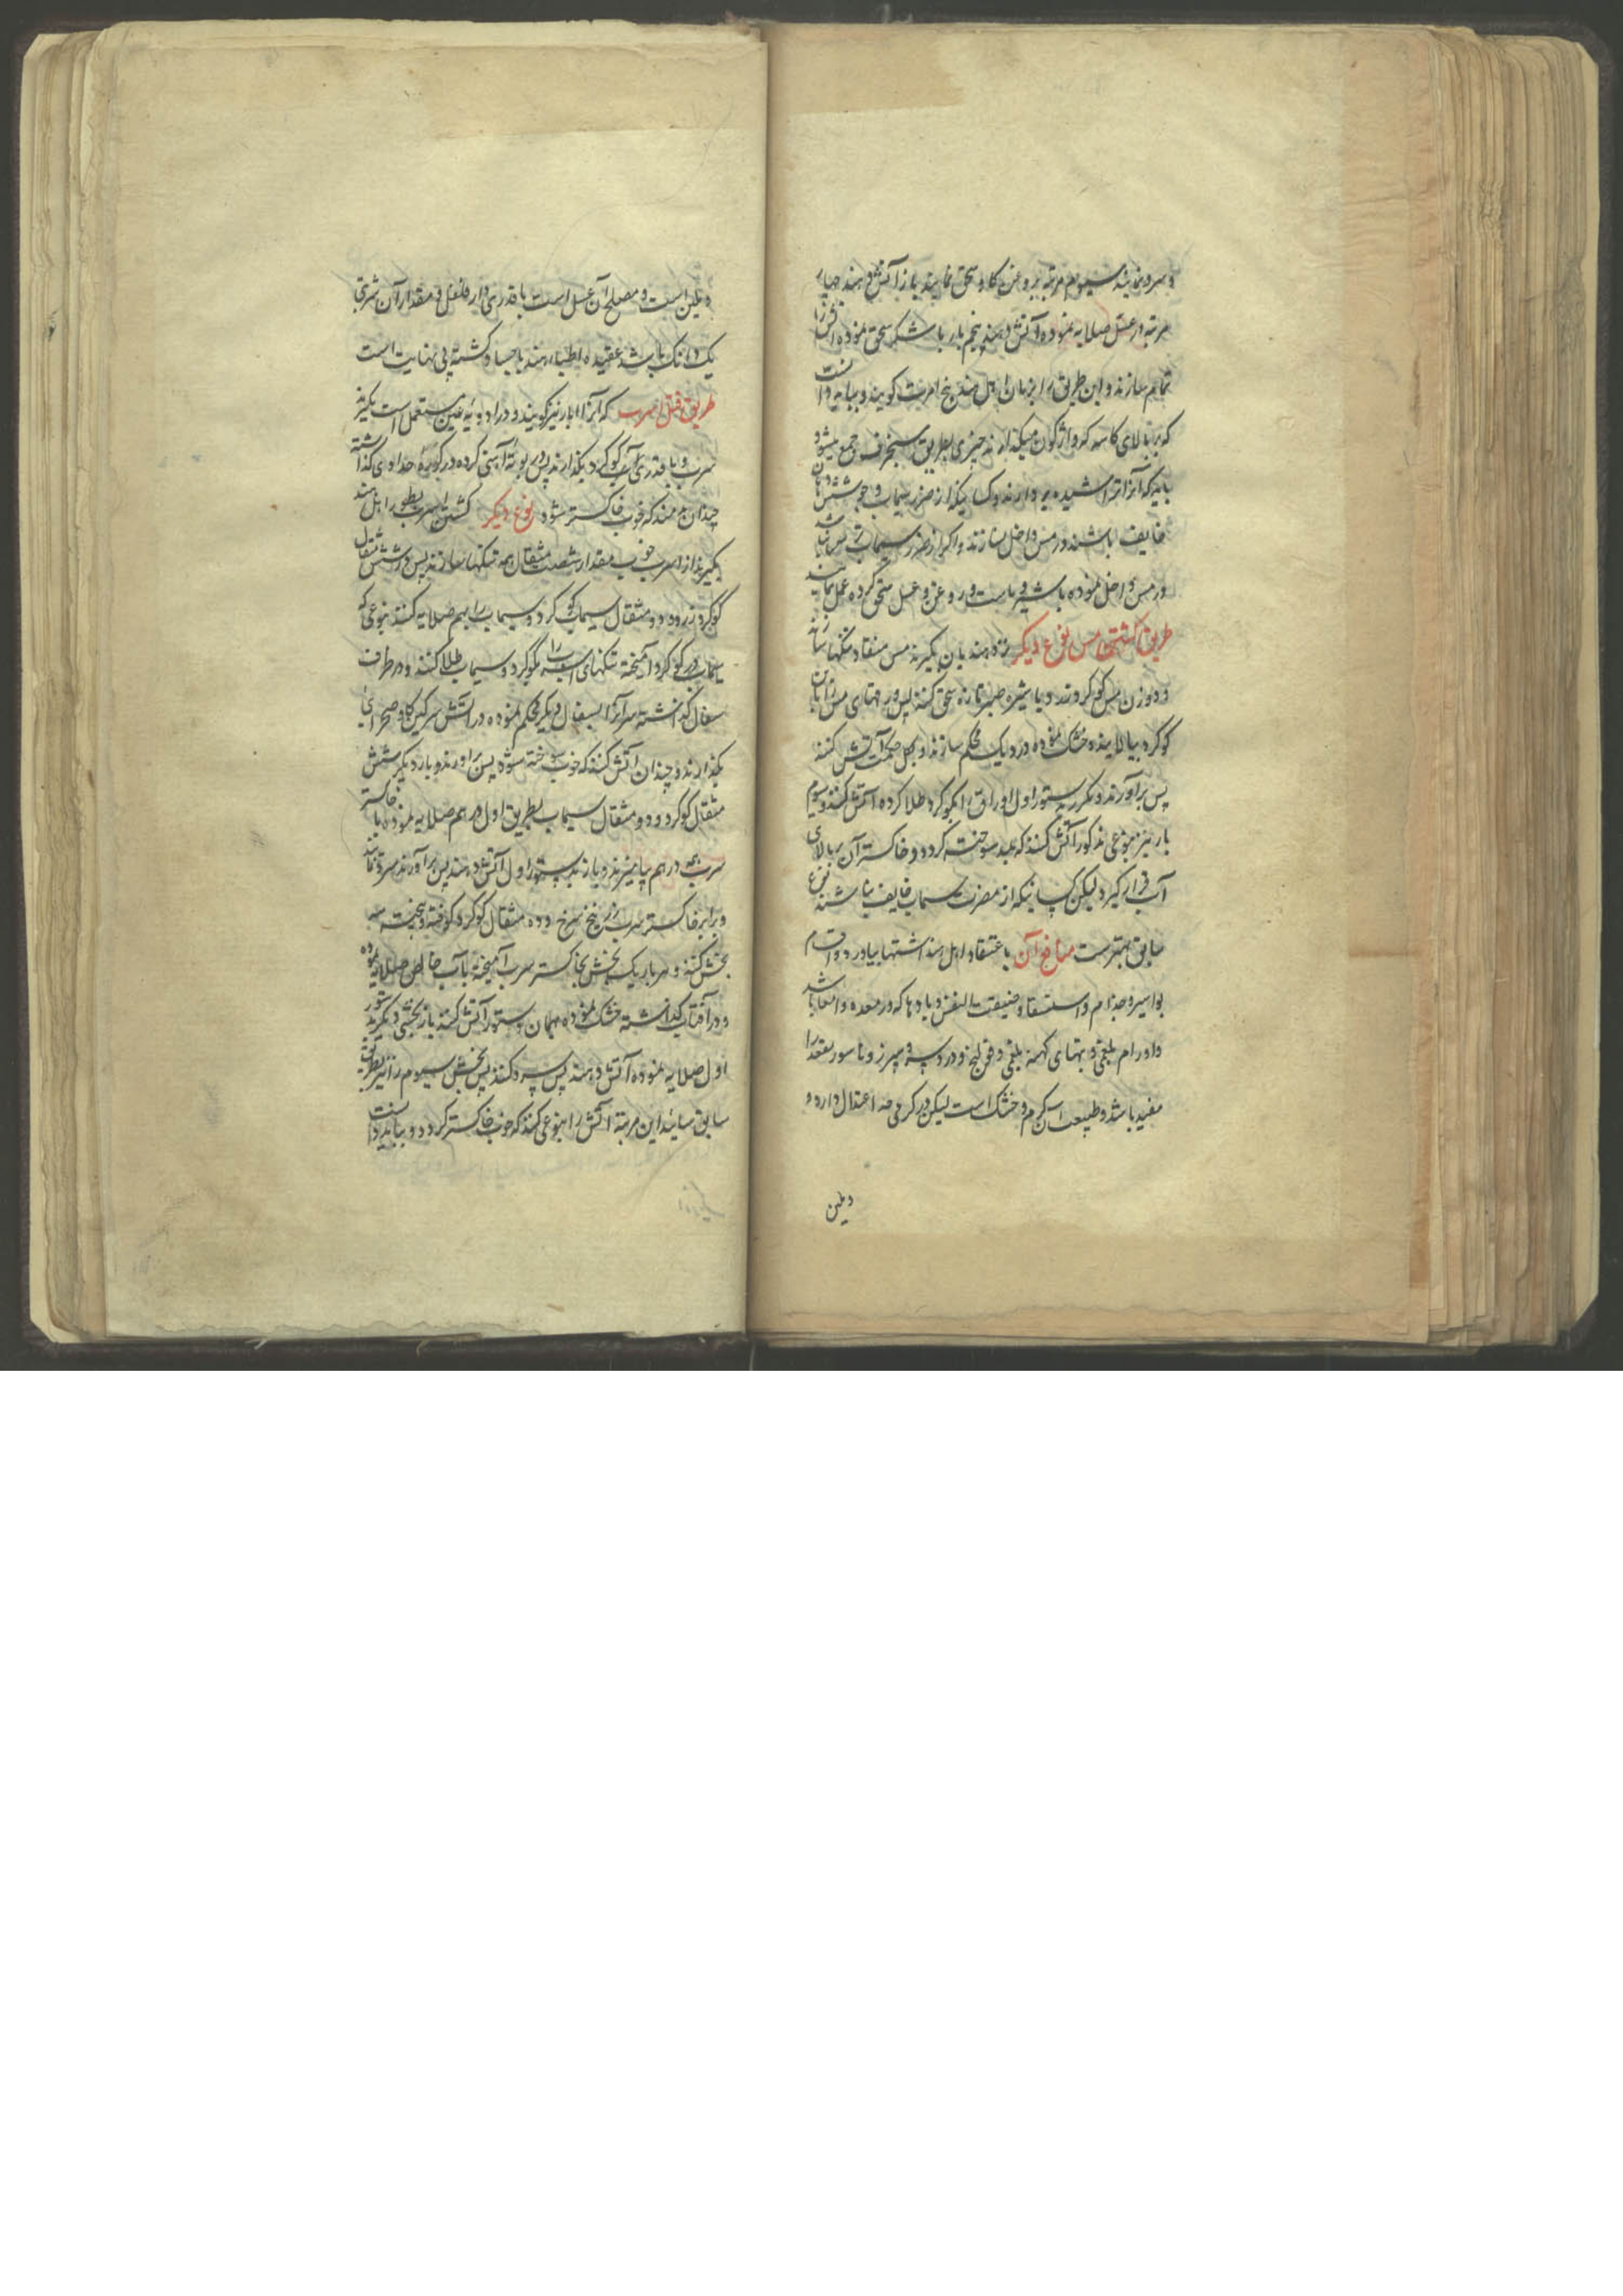 و سرد نمایند سیوم مرتبه بروغن کاو سحق نمایند باز آتش دهند چهارم
مرتبه در عسل صلایه نموده آتش دهند پنجم بار با شکر سحق نموده
تمام سازند و این طریق را بزبان اهل هند پنج امرت کویند و بباید دانست
که بر بالای کاسه که واژکون میکذارند چیزی بطریق سنجرف جمع میشود
باید که آنرا تراشیده بردارند و کسانیکه از ضرر سیماب و جوشش دهان
خایف باشند در مس داخل نسازند و اکر از ضرر سیماب ترسان نباشد
در مس داخل نموده با شیر و ماست و روغن و عسل سحق کرده عمل نمایند
طریق کشتن مس نوع دیکر نزد هندیان بکیرند مس منقا و تنکها سازند
و دو وزن مس کوکرد زرد و با شیره صبر تازه سحق کنند پس ورقهای مس را بان
کوکرد بیالایند و خشک نموده در دیک محکم سازند و بکل حکمت آتش کنند
پس برآورند و مکرر بدستور اول اوراق را بکوکرد طلا کرده آتش کنند و سیوم
بار نیز بنوعی مذکور آتش کنند که همه سوخته کردد و خاکستر آن بر بالای
آب قرار کیرد لیکن کسانیکه از مضرت سیماب خایف نباشند نوع
سابق بهتر ست منافع آن باعتقاد اهل هند اشتها بیاورد و اقسام
بواسیر و جذام و استسقا و ضیقت النفس و بادها که در معده و امعا باشد
و اورام بلغمی و تبهای کهنه بلغمی و قولنج و درد سپرز و ناسور مقعد را
مفید باشد و طبیعت آن کرم و خشک است لیکن در کرمی حد اعتدال دارد و
و ملین
و ملین است و مصلح آن عسل است با قدری دار فلفل و مقدار آن شربتی
یک دانک باشد عقیده اطباء هند با جساد کشته بی نهایت است
طریق قتل اسرب که آنرا ابار نیز کویند و در ادویه عین مستعمل است بکیرند
سرب و با قدری آب کوکرد بکذارند پس در بوته آهنی کرده در کوره حدادی کذاشته
چندان دمند که خوب خاکستر شود نوع دیکر کشتن اسرب بطور اهل هند
بکیرند از اسرب خوب مقدار شصت مثقال همه تنکها سازند پس شش مثقال
کوکرد زرد و دو مثقال سیماب کوکرد و سیماب را بهم صلایه کنند بنوعی که
سیماب در کوکرد آمیخته تنکهای اسرب را بکوکرد و سیماب طلا کنند و در ظرف
سفال کذاشته سر آنرا بسفال دیکر محکم نموده در آتش سرکین کاو صحرائی
بکذارند و چندان آتش کنند که خوب سوخته شود پس براورند و بار دیکر شش
مثقال کوکرد و دو مثقال سیماب بطریق اول در هم صلایه نموده با خاکستر
سرب همه در هم بیامیزند و باز بدستور اول آتش دهند پس برآورند سرد نمایند
و برابر خاکستر سرب زرنیخ سرخ و ده مثقال کوکرد کوفته و بیخته سه
بخش کنند و هر بار یک بخش بخاکستر سرب آمیخته با آب خالص صلایه نموده
و در آفتاب کذاشته خشک نموده بهمان دستور آتش کنند باز بخشی دیکر بدستور
اول صلایه نموده آتش دهند پس سرد کنند پس بخش سیوم را نیز بطریق
سابق سایند این مرتبه آتش را بنوعی کنند که خوب خاکستر کردد و بباید دانست